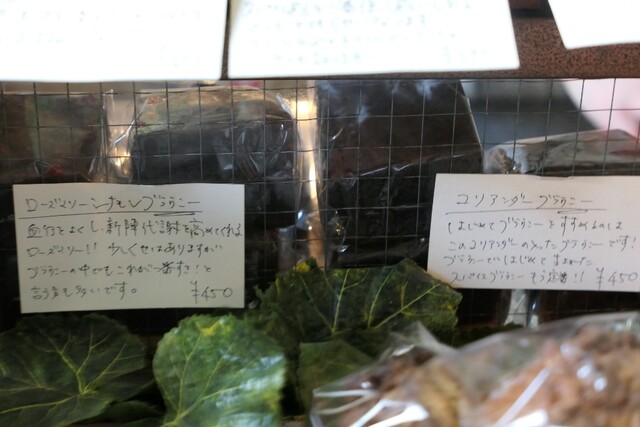 ローズマリーレモンブラウニー
血行をよくし、新陳代謝を高めてくれる
ローズマリー!! 少しくせはありますが
ブラウニーの中でもこれが一番すき!と
言う方も多いです。
¥450
コリアンダーブラウニー
はじめてブラウニーをすすめるのは
このコリアンダーの入ったブラウニーです!
ブラウニーではじめて
スパイスブラウニー 定番!!
¥450